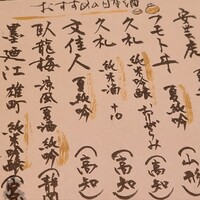 おすすめの日本酒
フモトヰ 純米吟醸 おりがらみ (山形)
久礼 夏純吟 (高知)
久礼 純米酒 +10 (高知)
文佳人 夏純吟 (高知)
臥龍梅 涼風夏酒 純吟 (静岡
墨廼江 雄町 純米吟醸 (宮